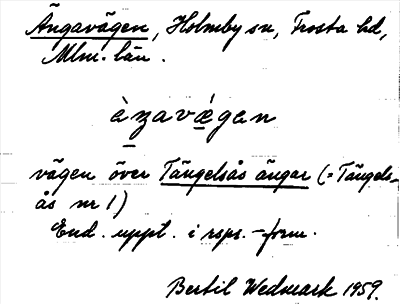 Ängavägen, Holmby sn, Frosta hd,
Mlm. län.
èŋavǽgan
vägen över Tängelsås ängar (= Tängels-
ås nr 1)
End. uppt. i rsps.-form.
Bertil Wedmark 1959.